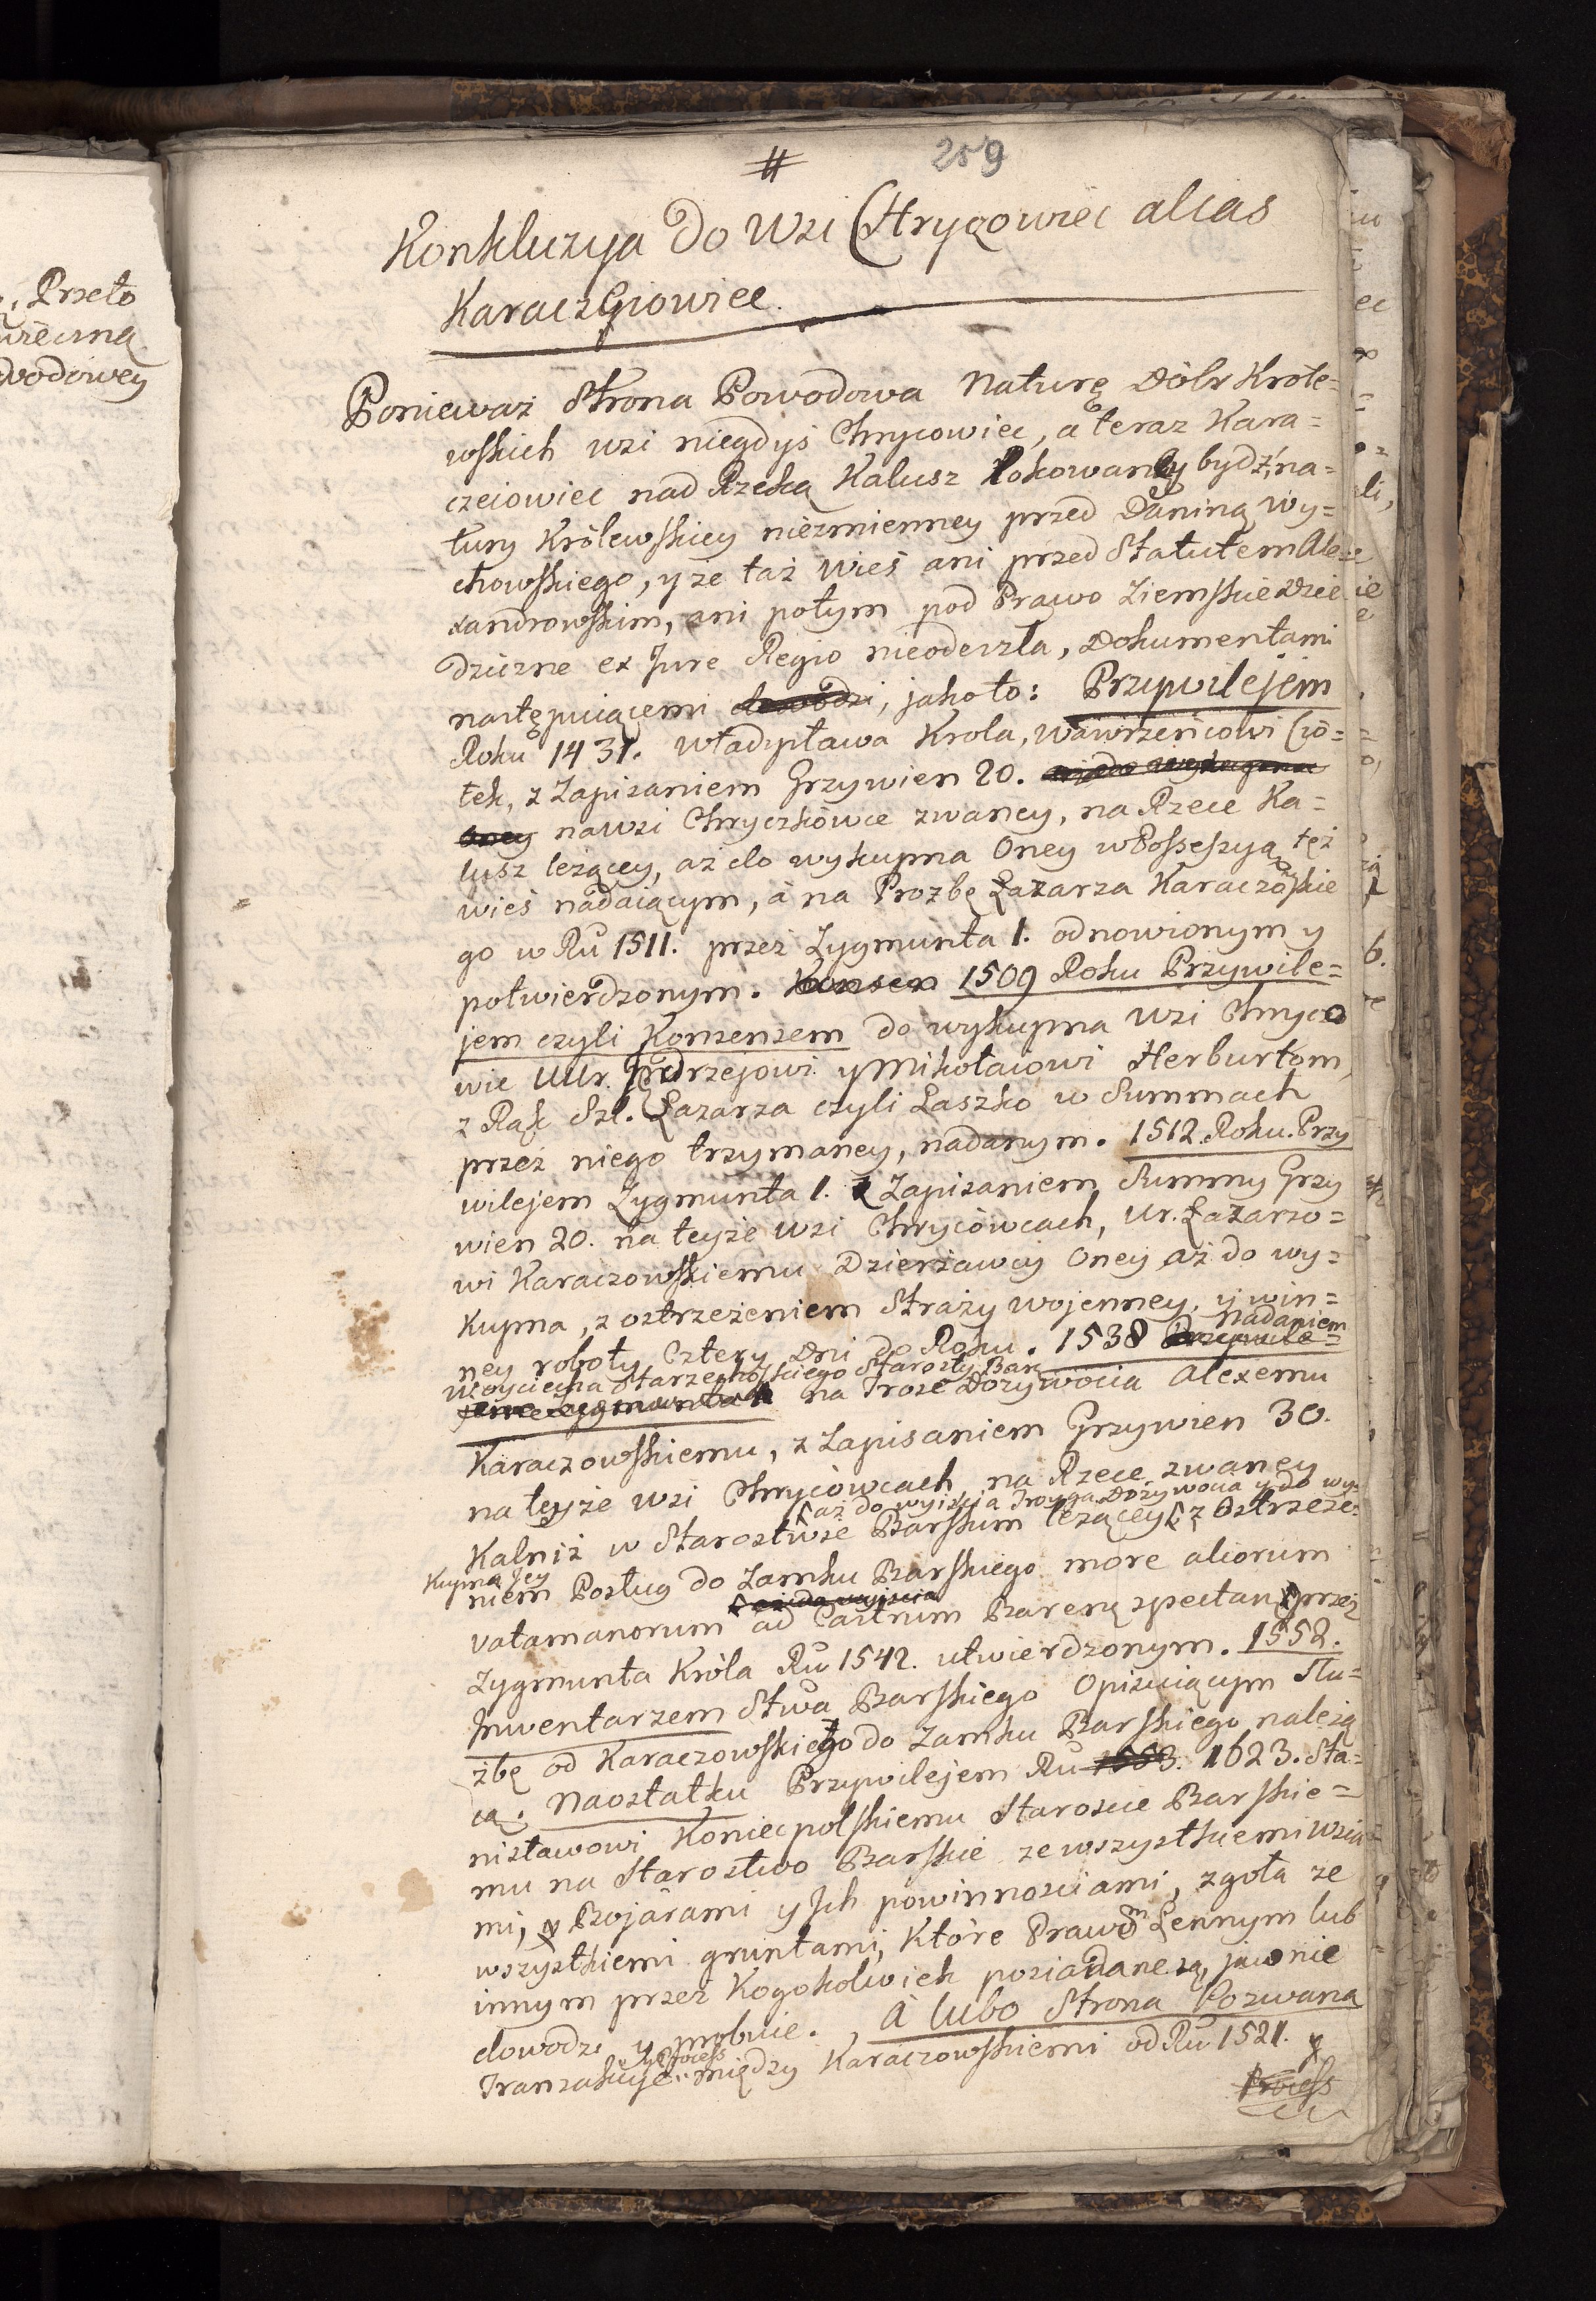 #
259
Konkluzya do Wsi Chrycowiec alias
Karaczeiowiec.
Ponieważ Strona Powodowa Naturę Dóbr Krole=
wskich wsi niegdyś Chrycowiec, a teraz Kara=
czeiowiec nad Rzeką Kalusz lokowaney bydź, na=
tury Królewskiey niezmienney przed Daniną Wy=
chowskiego, y że taż Wieś ani przed Statutem Ale=
xandrowskim, ani potym pod Prawo Ziemskie Dzie
dziczne ex Jure Regio nieodeszła, Dokumentami
następuiącemi dowodzi, jako to: Przywilejem
Roku 1431. Władysława Krola, Wawrzeńcowi Cio=
tek, z Zapisaniem Grzywien 20. aż do wykupna
oney na Wsi Chryczkowce zwaney, na Rzece Ka=
lusz leżącey, aż do wykupna Oney w Possessyą też
wieś nadaiącym, à na Prozbę Łazarza Karaczowskie
go w Ru 1511. przez Zygmunta I. odnowionym y
potwierdzonym. Konsen 1509 Roku Przywile=
jem czyli Konsensem do wykupna Wsi Chryco
wic UUr. Jędrzejowi y Mikołaiowi Herburtom,
z Rąk Szl. Łazarza czyli Laszko w Summach
przez niego trzymaney, nadanym. 1512. Roku. Przy
wilejem Zygmunta I. z Zapisaniem Summy Grzy
wien 20. na teyże Wsi Chryciowcach, Ur. Łazarzo=
wi Karaczowskiemu Dzierżawcy Oney aż do wy=
kupna, z ostrzeżeniem Straży wojenney, y win=
Nadaniem
ney roboty Cztery Dni do Roku. 1538 Przywile=
Woyciecha Starzechowskiego Starosty Bar:
jem Zygmunta I na Troie Dożywocia Alexemu
Karaczowskiemu, z Zapisaniem Grzywien 30.
na teyże wsi Chryciowcach na Rzece zwaney
aż do wyiścia Troyga Dożywocia y do wy=
Kalniż w Starostwie Barskim leżącey z Ostrzeże=
kupna Jey
niem Posług do Zamku Barskiego more aliorum
aż do wyiscia
Vatamanorum ad Castrum Barense spectan: przez
Zygmunta Króla Ru 1542. utwierdzonym. 1552.
Inwentarzem Stwa Barskiego Opisuiącym Słu=
żbę od Karaczowskiego do Zamku Barskiego należą
cą. Naostatku Przywilejem Ru 1553. 1623. Sta=
nisławowi Koniecpolskiemu Staroscie Barskie=
mu na Starostwo Barskie ze wszystkiemi Wsia
mi, y Bojarami y Ich powinnosciami, zgoła ze
wszystkiemi gruntami, które Prawem Lennym lub
innym przez Kogokolwiek posiadane są, jawnie
dowodzi y probuie. A lubo Strona Pozwana
y Process
Tranzakcye między Karaczowskiemi od Ru 1521. y
Process
Przeto
wieczną
wodowey